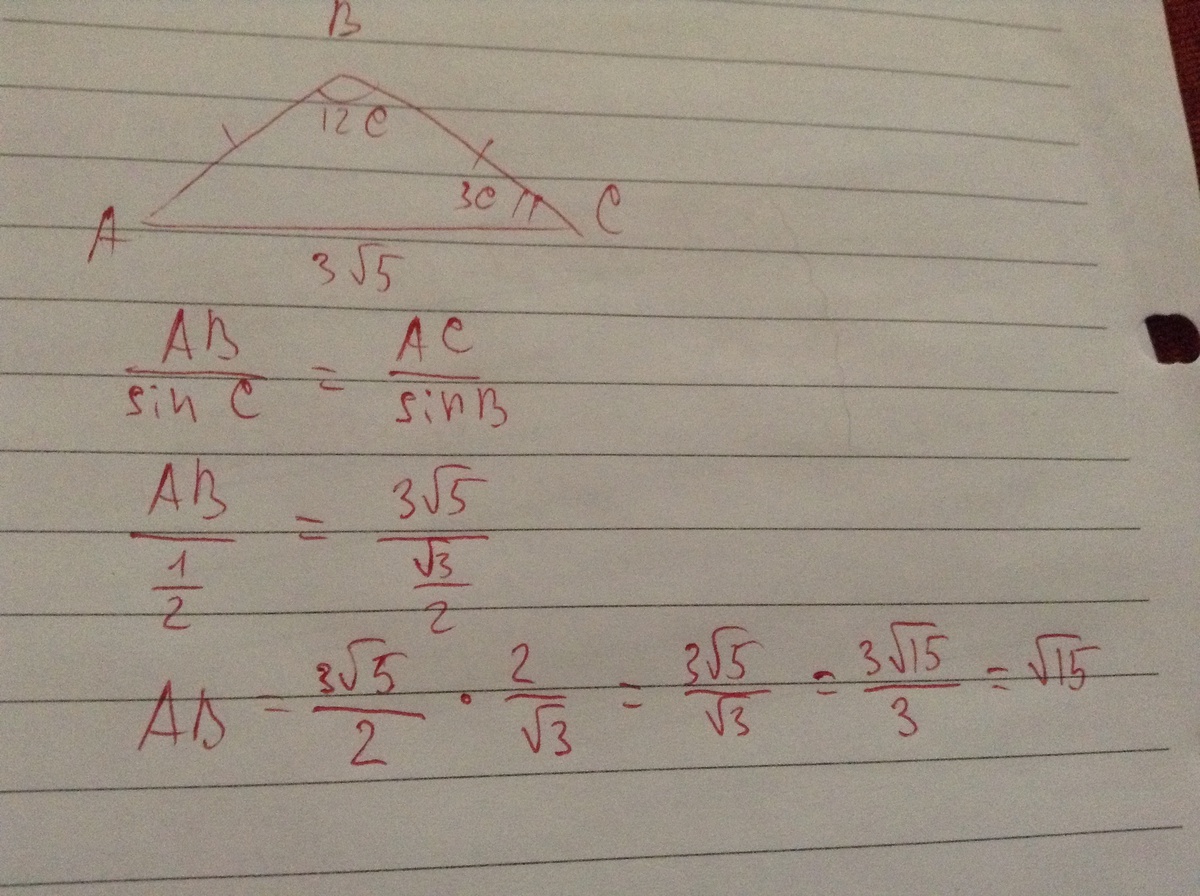 B
12C
3C
A C
3√5
AB/sin C = AC/sin B
AB/(1/2) = 3√5/(√3/2)
AB = 3√5/2 · 2/√3 = 3√5/√3 = 3√15/3 = √15